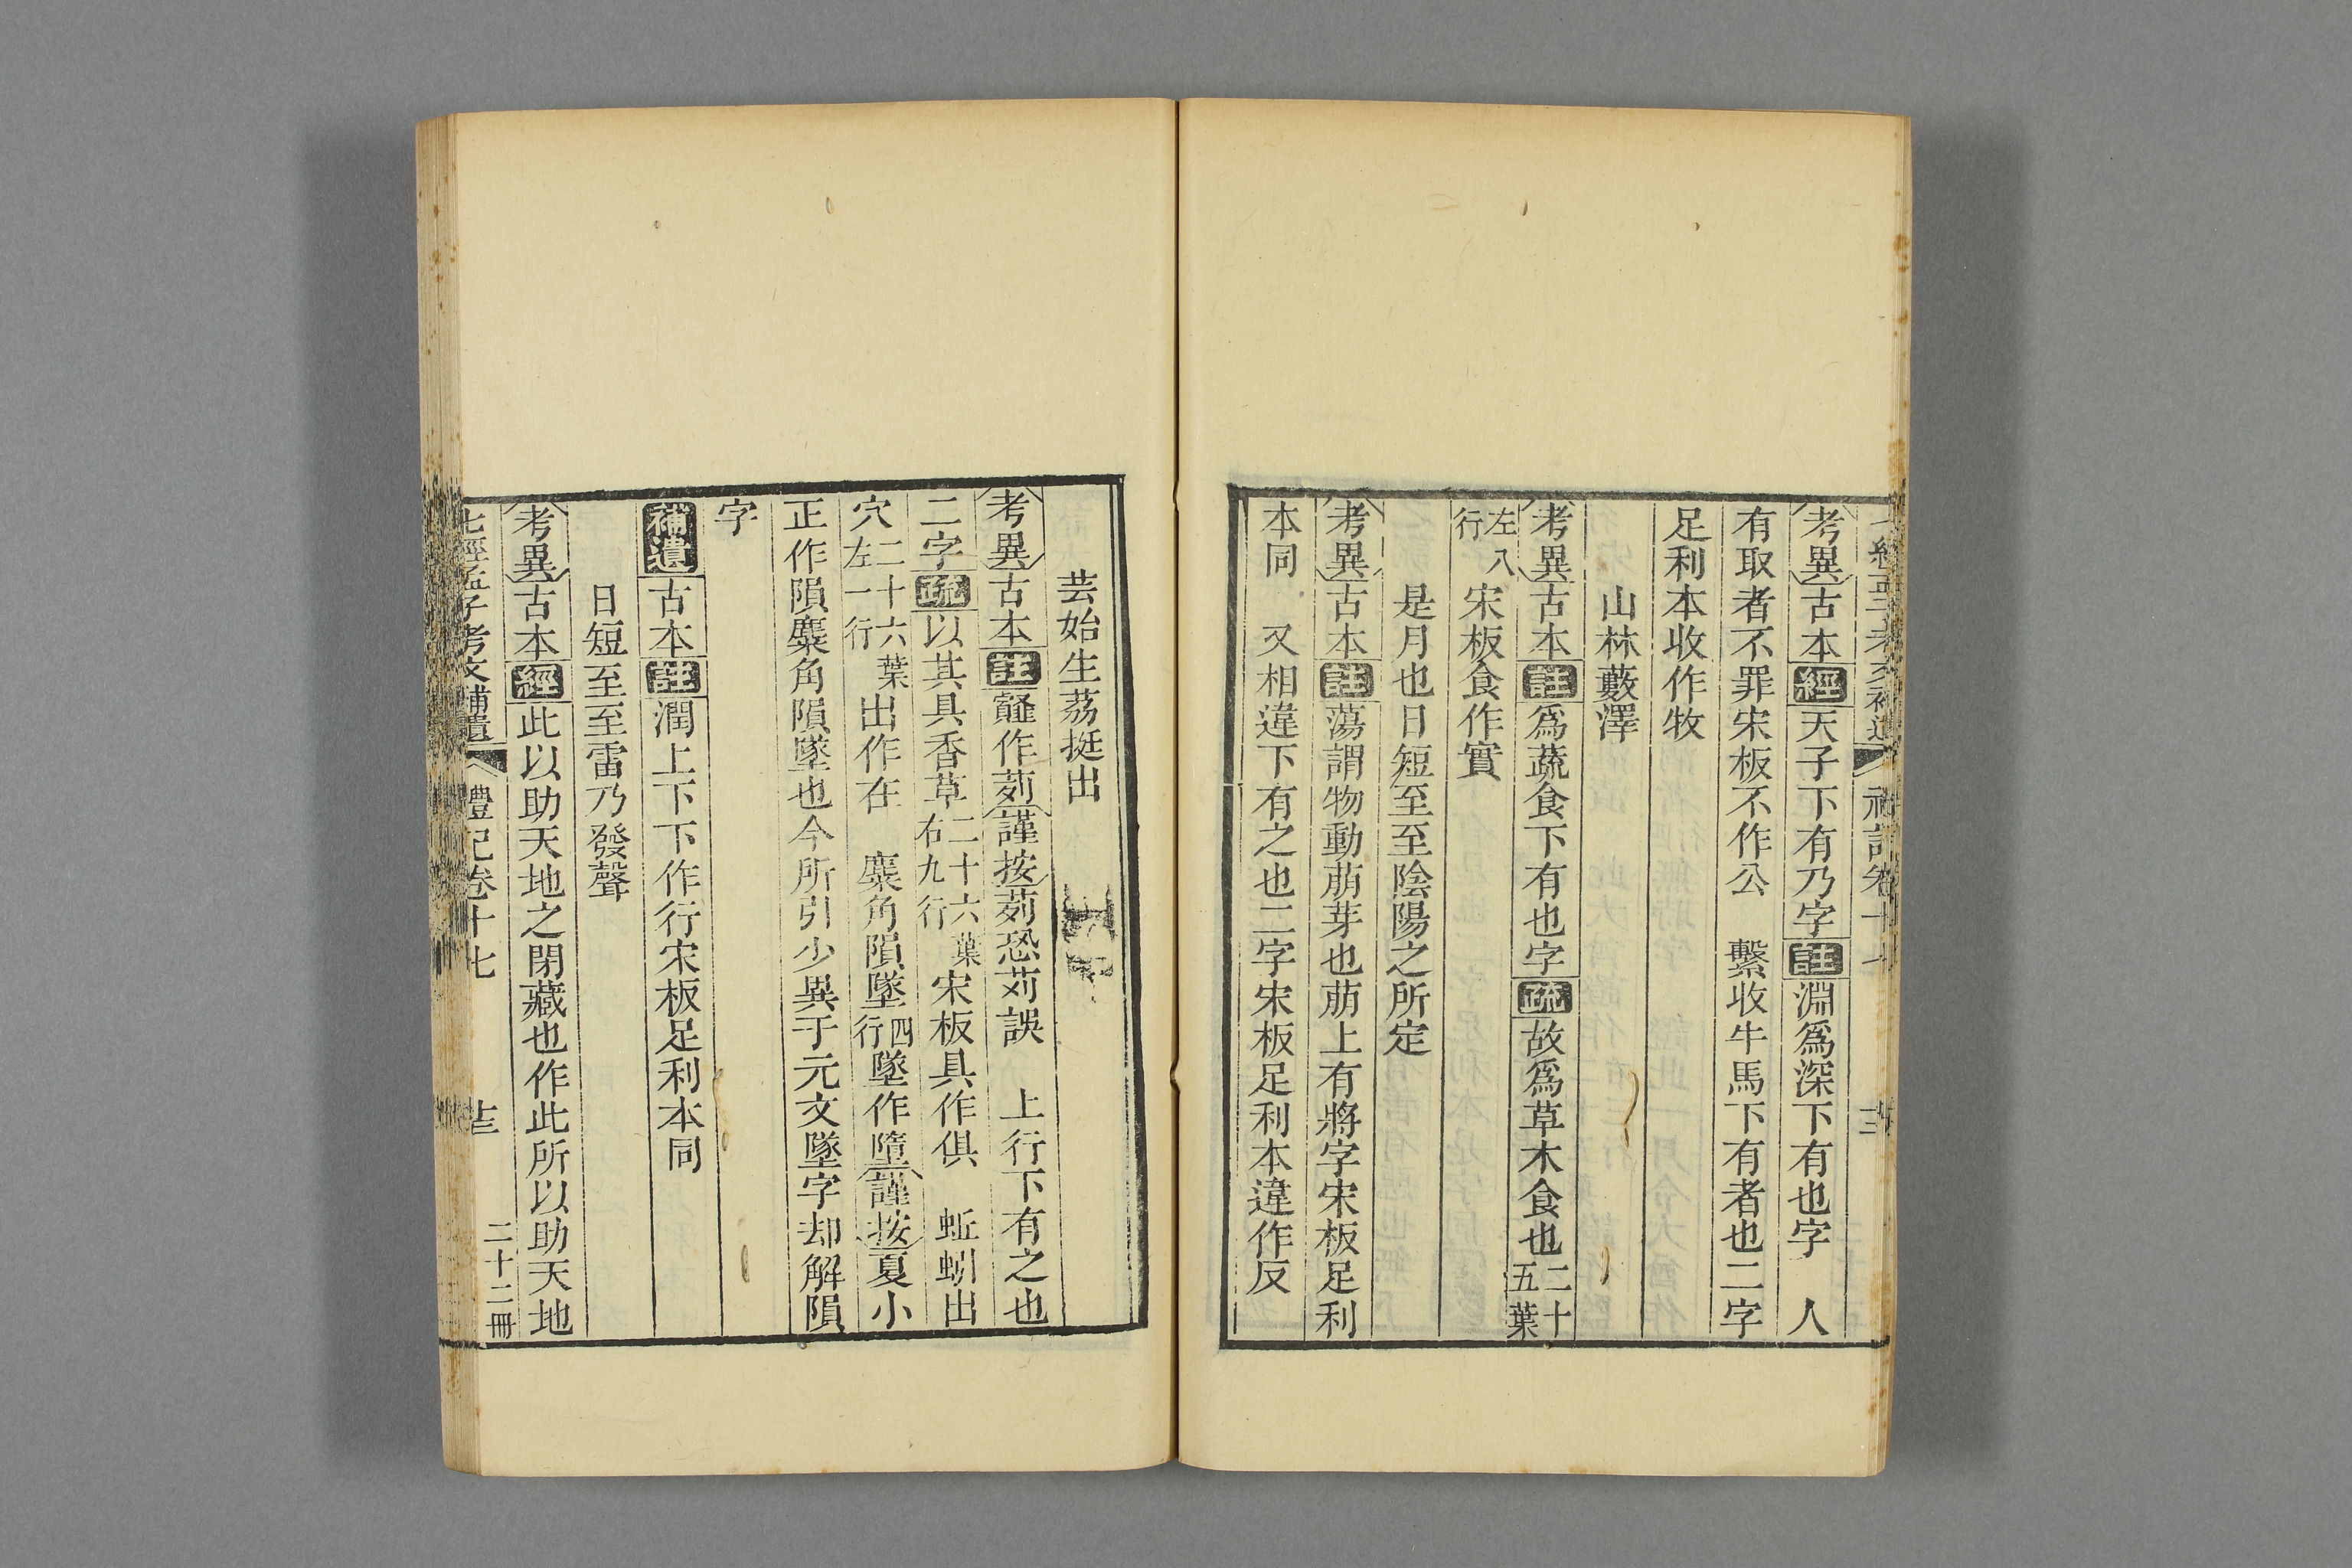 考異古本經天子下有乃字註淵爲深下有也字　人
有取者不罪宋板不作公　繫收牛馬下有者也二字
足利本收作牧
山林藪澤
考異古本註爲蔬食下有也字疏故爲草木食也二十五葉
左八行宋板食作實
是月也日短至至陰陽之所定
考異古本註蕩謂物動萠芽也萠上有將字宋板足利
本同　又相違下有之也二字宋板足利本違作反
芸始生荔挺出
考異古本註䪥作茢謹按茢恐苅誤　上行下有之也
二字疏以其具香草二十六葉右九行宋板具作俱　蚯蚓出
穴二十六葉左一行出作在　麋角隕墜四行墜作墮謹按夏小
正作隕麋角隕墜也今所引少異于元文墜字却解隕
字
補遺古本註潤上下下作行宋板足利本同
日短至至雷乃發聲
考異古本經此以助天地之閉藏也作此所以助天地
七經孟子考文補遺　禮記卷十七　二十二冊